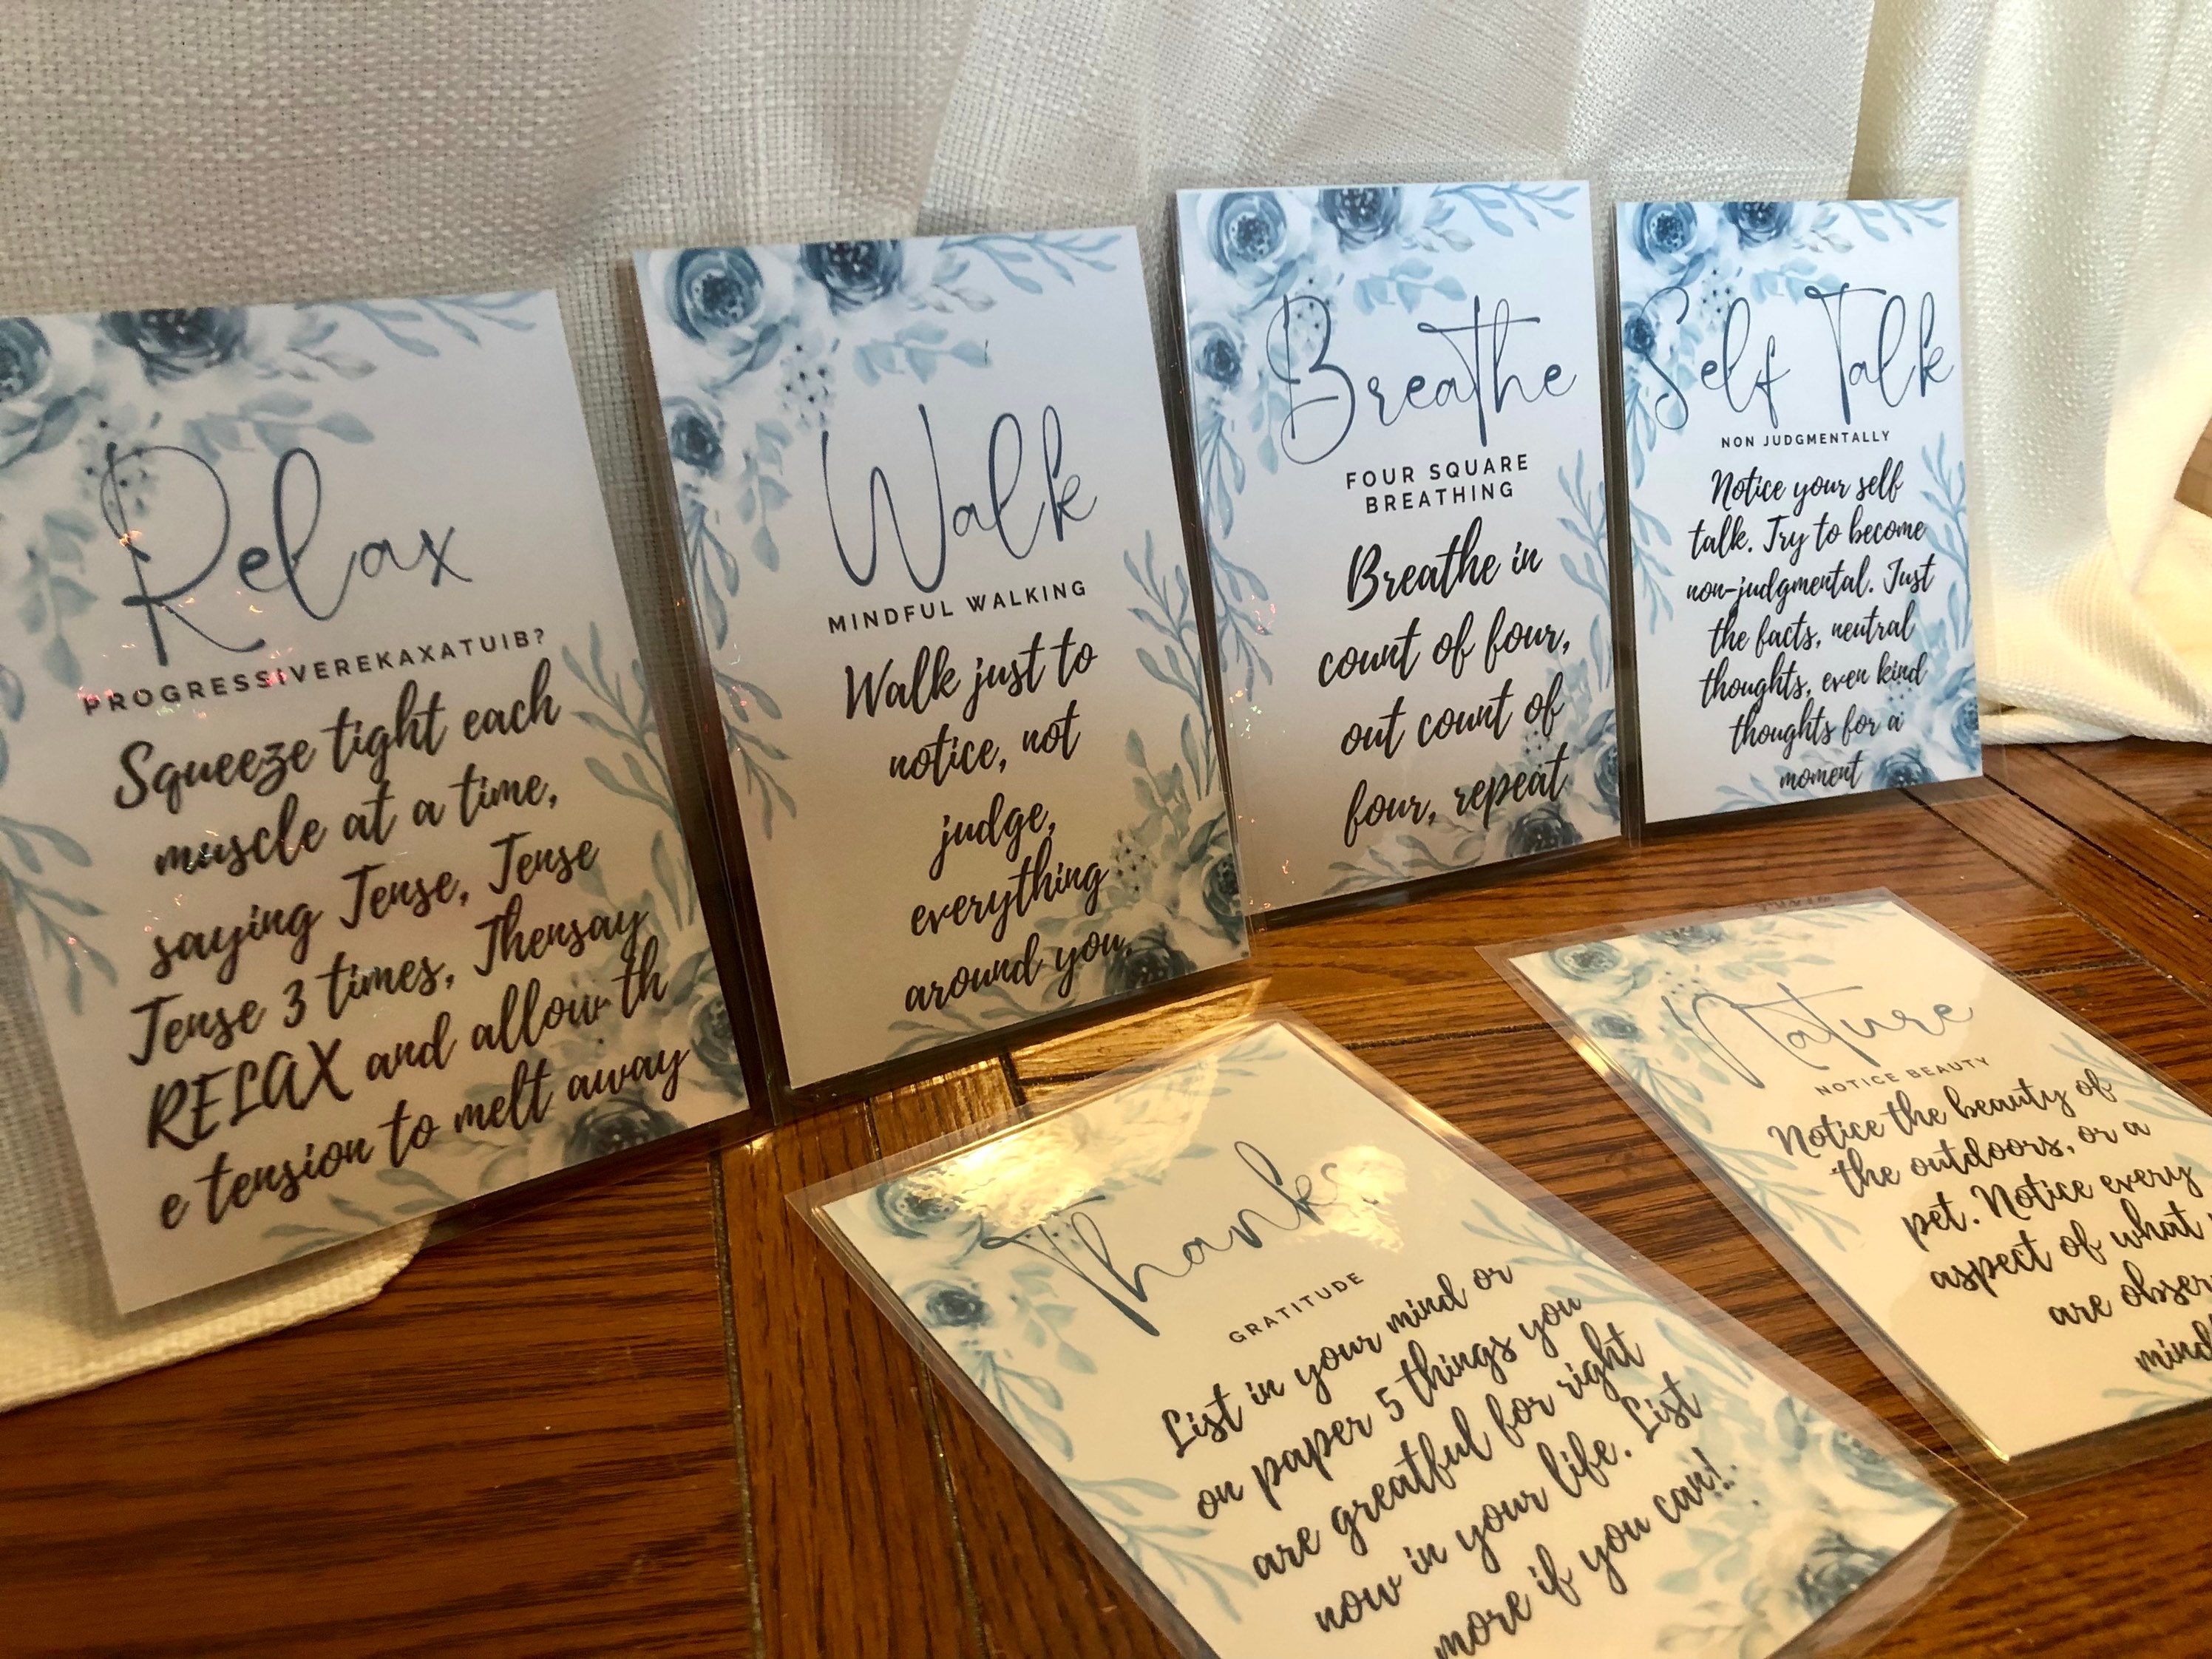 Relax
PROGRESSIVEREKAXATUIB?
Squeeze tight each
muscle at a time,
saying Tense, Tense
Tense 3 times, Thensay
RELAX and allow th
e tension to melt away
Walk
MINDFUL WALKING
Walk just to
notice, not
judge,
everything
around you.
Breathe
FOUR SQUARE
BREATHING
Breathe in
count of four,
out count of
four, repeat
Self Talk
NON JUDGMENTALLY
Notice your self
talk. Try to become
non-judgmental. Just
the facts, neutral
thoughts, even kind
thoughts for a
moment
Thanks
GRATITUDE
List in your mind or
on paper 5 things you
are greatful for right
now in your life. List
more if you can!
Nature
NOTICE BEAUTY
Notice the beauty of
the outdoors, or a
pet. Notice every
aspect of what
are obser
mind